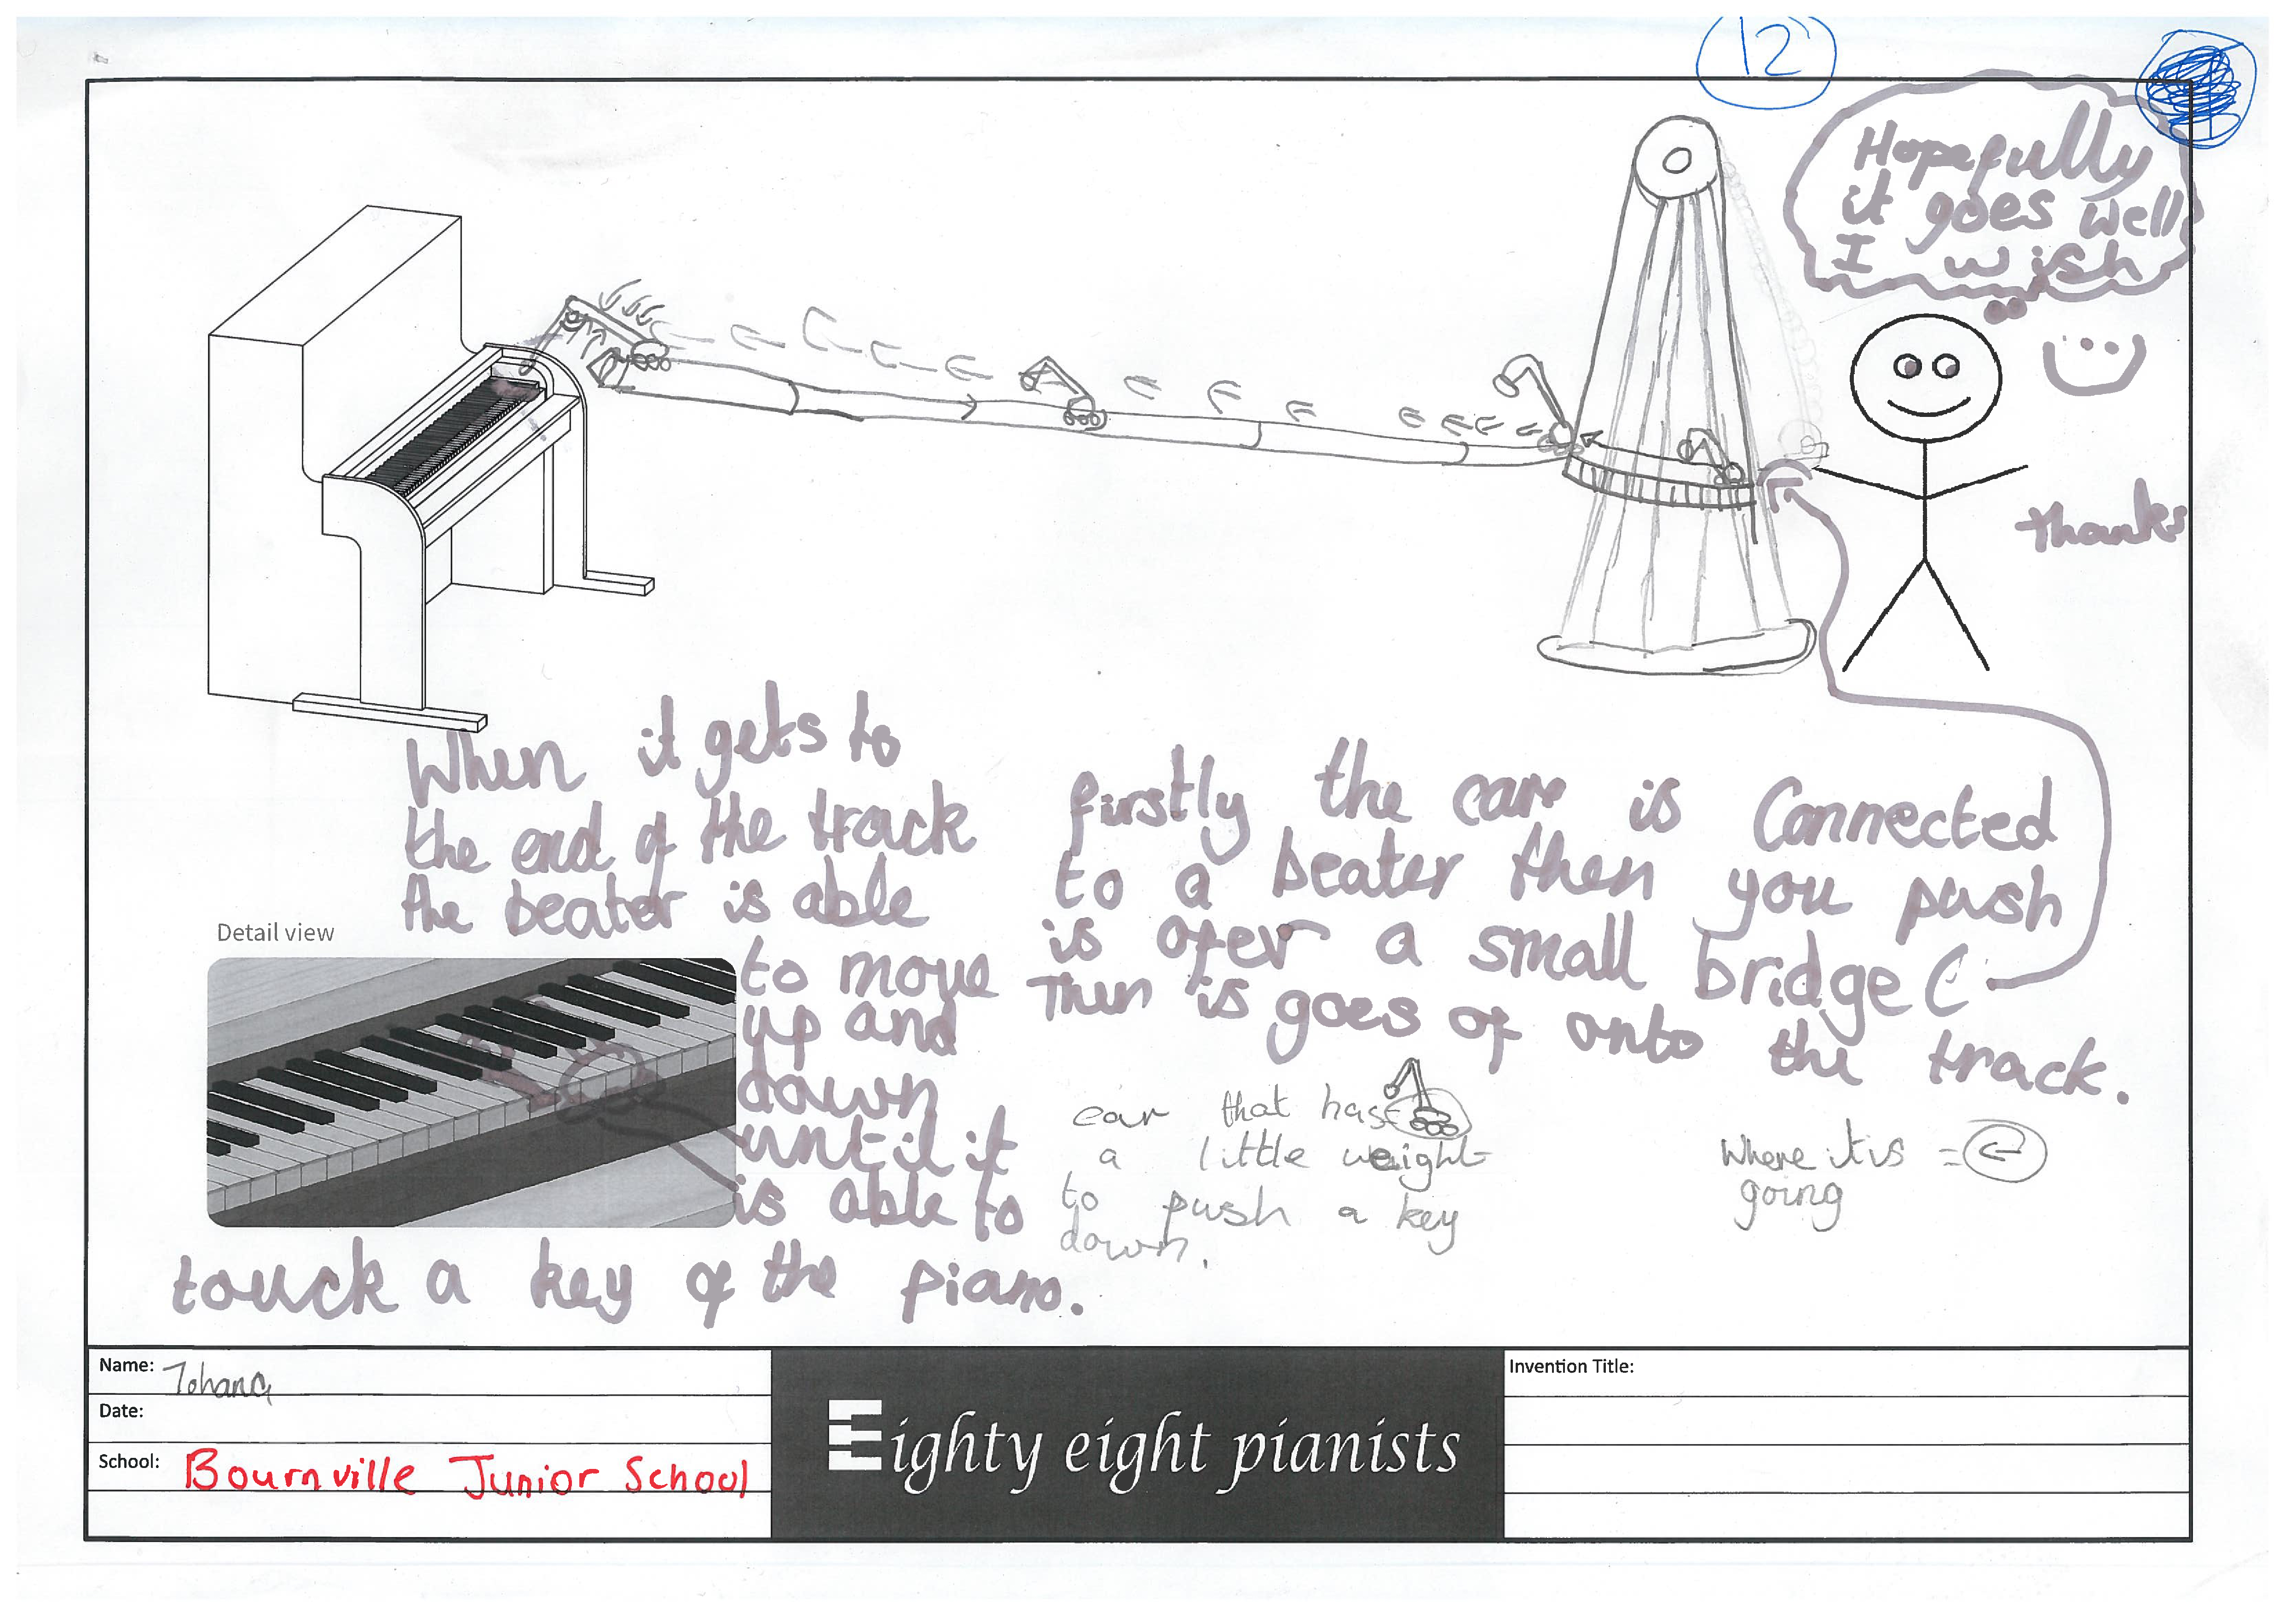 12
Hopefully
it goes well
I wish
thanks
When it gets to
the end of the track
the beater is able
to move
up and
down
until it
is able to
touck a key of the piano.
firstly the care is Connected
to a beater then you push
is ofer a small bridge (
Then is goes of onto the track.
car that has
a little weight
to push a key
down.
Where it is =
going
Detail view
Name:
Date:
School: Bournville Junior School
Eighty eight pianists
Invention Title: